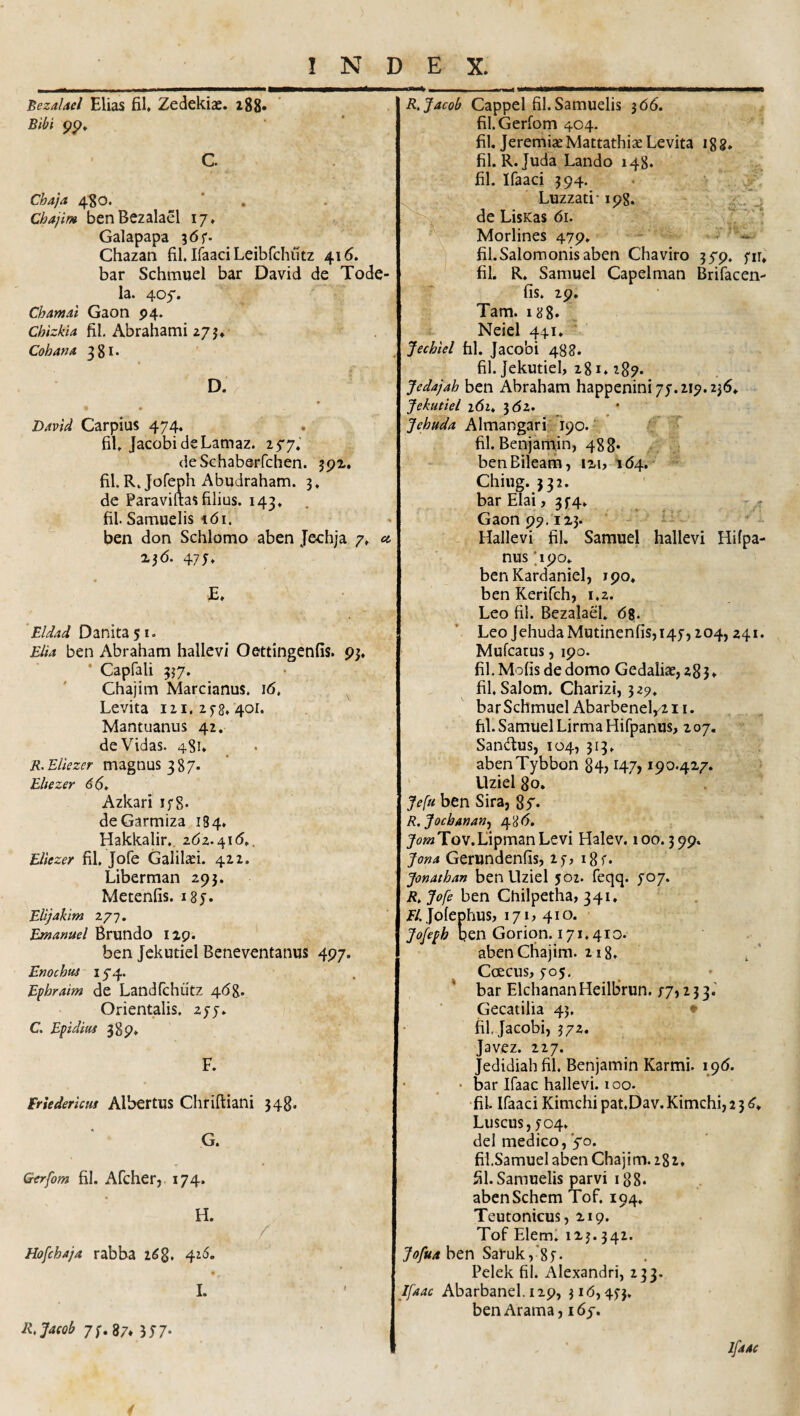 INDEX.
Bezalael Elias fil. Zedekiæ. 288.
Bibi 99.
C.
Chaja 480.
Chajim ben Bezalaël 17.
Galapapa 365.
Chazan fil. Isaaci Leibschütz 416.
bar Schmuel bar David de Tode-
la. 405.
Chamai Gaon 94.
Chizkia fil. Abrahami 273.
Cohana 381.
D.
David Carpius 474.
fil. Jacobi de Lamaz. 257.
de Schaberschen. 392.
fil. R. Joseph Abudraham. 3.
de Paravistas filius. 143.
fil. Samuelis 161.
ben don Schlomo aben Jechja 7. &
236. 475.
E.
Eldad Danita 51.
Elia ben Abraham hallevi Oettingensis. 93.
Capsali 337.
Chajim Marcianus. 16.
Levita 121. 258. 401.
Mantuanus 42.
de Vidas. 481.
R. Eliezer magnus 387.
Eliezer 66.
Azkari 158.
de Garmiza 184.
Hakkalir. 262. 416.
Eliezer fil. Jose Galilæi. 422.
Liberman 293.
Metensis. 185.
Elijakim 277.
Emanuel Brundo 129.
ben Jekutiel Beneventanus 497.
Enochus 154.
Ephraim de Landschütz 468.
Orientalis. 255.
C. Epidius 389.
F.
Friedericus Albertus Christiani 348.
G.
Gersom fil. Ascher, 174.
H.
Hoschaja rabba 268. 426.
I.
R. Jacob 75. 87. 357.
R. Jacob Cappel fil. Samuelis 366.
fil. Gersom 404.
fil. Jeremiæ Mattathiæ Levita 188.
fil. R. Juda Lando 148.
fil. Isaaci 394.
Luzzati 198.
de Liskas 61.
Morlines 479.
fil. Salomonis aben Chaviro 359. 511.
fil. R. Samuel Capelman Brisacen-
sis. 29.
Tam. 188.
Neiel 441.
Jechiel fil. Jacobi 488.
fil. Jekutiel, 281. 289.
Jedajah ben Abraham happenini 75. 219. 236.
Jekutiel 262. 362.
Jehuda Almangari 190.
fil. Benjamin, 488.
ben Bileam, 121, 164.
Chiug. 332.
bar Elai, 354.
Gaon 99. 123.
Hallevi fil. Samuel hallevi Hispa-
nus 190.
ben Kardaniel, 190.
ben Kerisch, 1.2.
Leo fil. Bezalaël. 68.
Leo Jehuda Mutinensis, 145, 204, 241.
Muscatus, 190.
fil. Mosis de domo Gedaliæ, 283.
fil. Salom. Charizi, 329.
bar Schmuel Abarbenel, 211.
fil. Samuel Lirma Hispanus, 207.
Sanctus, 104, 313.
aben Tybbon 84, 147, 190. 427.
Uziel 80.
Jesu ben Sira, 85.
R. Jochanan, 486.
Jom Tov. Lipman Levi Halev. 100. 399.
Jona Gerundensis, 25, 185.
Jonathan ben Uziel 502. seqq. 507.
R. Jose ben Chilpetha, 341.
Fl. Josephus, 171, 410.
Joseph ben Gorion. 171. 410.
aben Chajim. 218.
Cœcus, 505.
bar Elchanan Heilbrun. 57, 233.
Gecatilia 43.
fil. Jacobi, 372.
Javez. 227.
Jedidiah fil. Benjamin Karmi. 196.
bar Isaac hallevi. 100.
fil. Isaaci Kimchi pat. Dav. Kimchi, 236.
Luscus, 504.
del medico, 50.
fil. Samuel aben Chajim. 282.
fil. Samuelis parvi 188.
aben Schem Tof. 194.
Teutonicus, 219.
Tof Elem. 123. 342.
Josua ben Saruk, 85.
Pelek fil. Alexandri, 233.
Isaac Abarbanel. 129, 316, 453.
ben Arama, 165.
Isaac